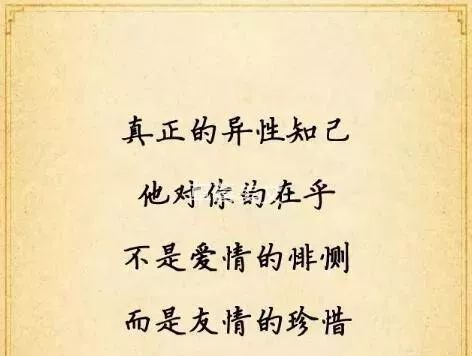 真正的异性知己
他对你的在乎
不是爱情的悱恻
而是友情的珍惜